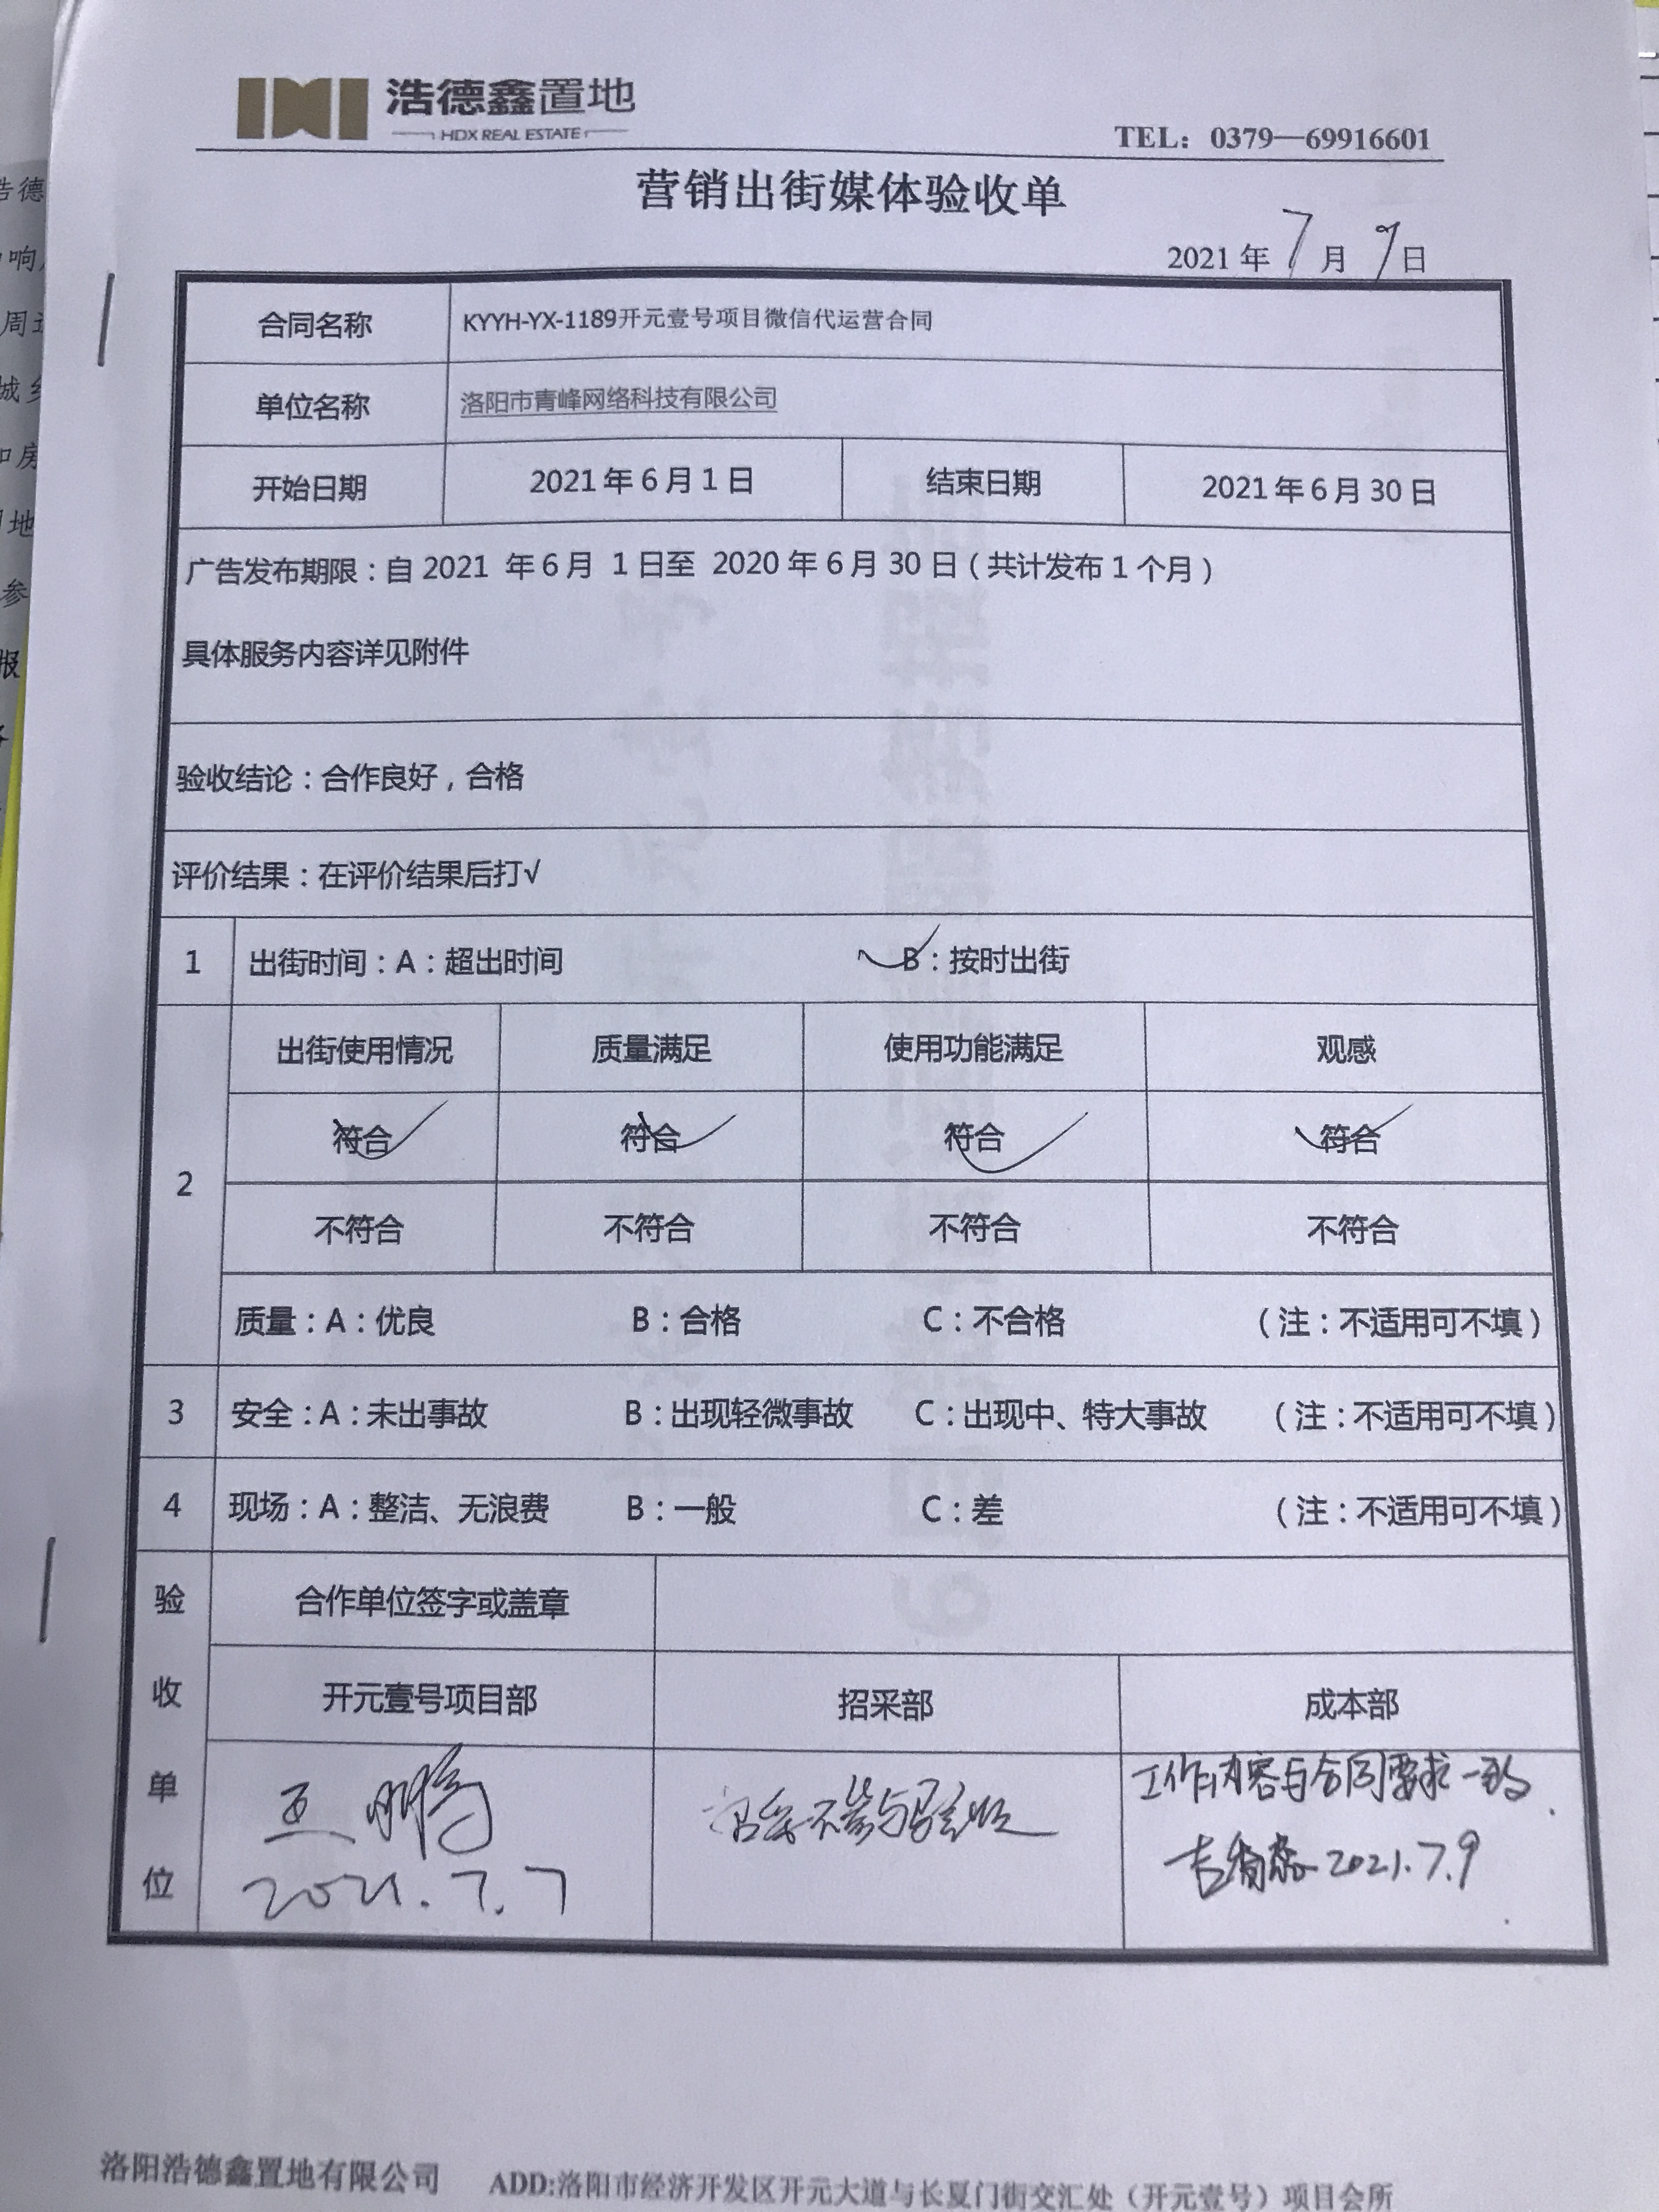 浩德鑫置地
HDX REAL ESTATE
TEL：0379—69916601
营销出街媒体验收单
2021 年 7 月 9 日
合同名称 KYYH-YX-1189开元壹号项目微信代运营合同
单位名称 洛阳市青峰网络科技有限公司
开始日期 2021 年 6 月 1 日 结束日期 2021 年 6 月 30 日
广告发布期限：自 2021 年 6 月 1 日至 2020 年 6 月 30 日（共计发布 1 个月）
具体服务内容详见附件
验收结论：合作良好，合格
评价结果：在评价结果后打√
1 出街时间：A：超出时间 B：按时出街
出街使用情况 质量满足 使用功能满足 观感
符合 符合 符合 符合
2
不符合 不符合 不符合 不符合
质量：A：优良 B：合格 C：不合格 （注：不适用可不填）
3 安全：A：未出事故 B：出现轻微事故 C：出现中、特大事故 （注：不适用可不填）
4 现场：A：整洁、无浪费 B：一般 C：差 （注：不适用可不填）
验收单位
合作单位签字或盖章
开元壹号项目部 招采部 成本部
王鹏 招采不参与验收 工作内容与合同要求一致.
2021.7.7 2021.7.9
洛阳浩德鑫置地有限公司 ADD:洛阳市经济开发区开元大道与长夏门街交汇处（开元壹号）项目会所